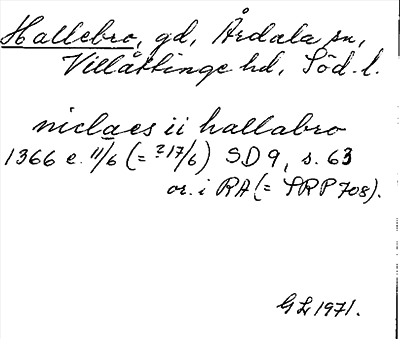 Hallebro, gd, Årdala sn,
Villåttinge hd, Söd. l.
niclaes ii hallabro
1366 e. 11/6 (= ? 17/6) SD 9, s. 63
or. i RA (= SRP 708).
G L 1971.